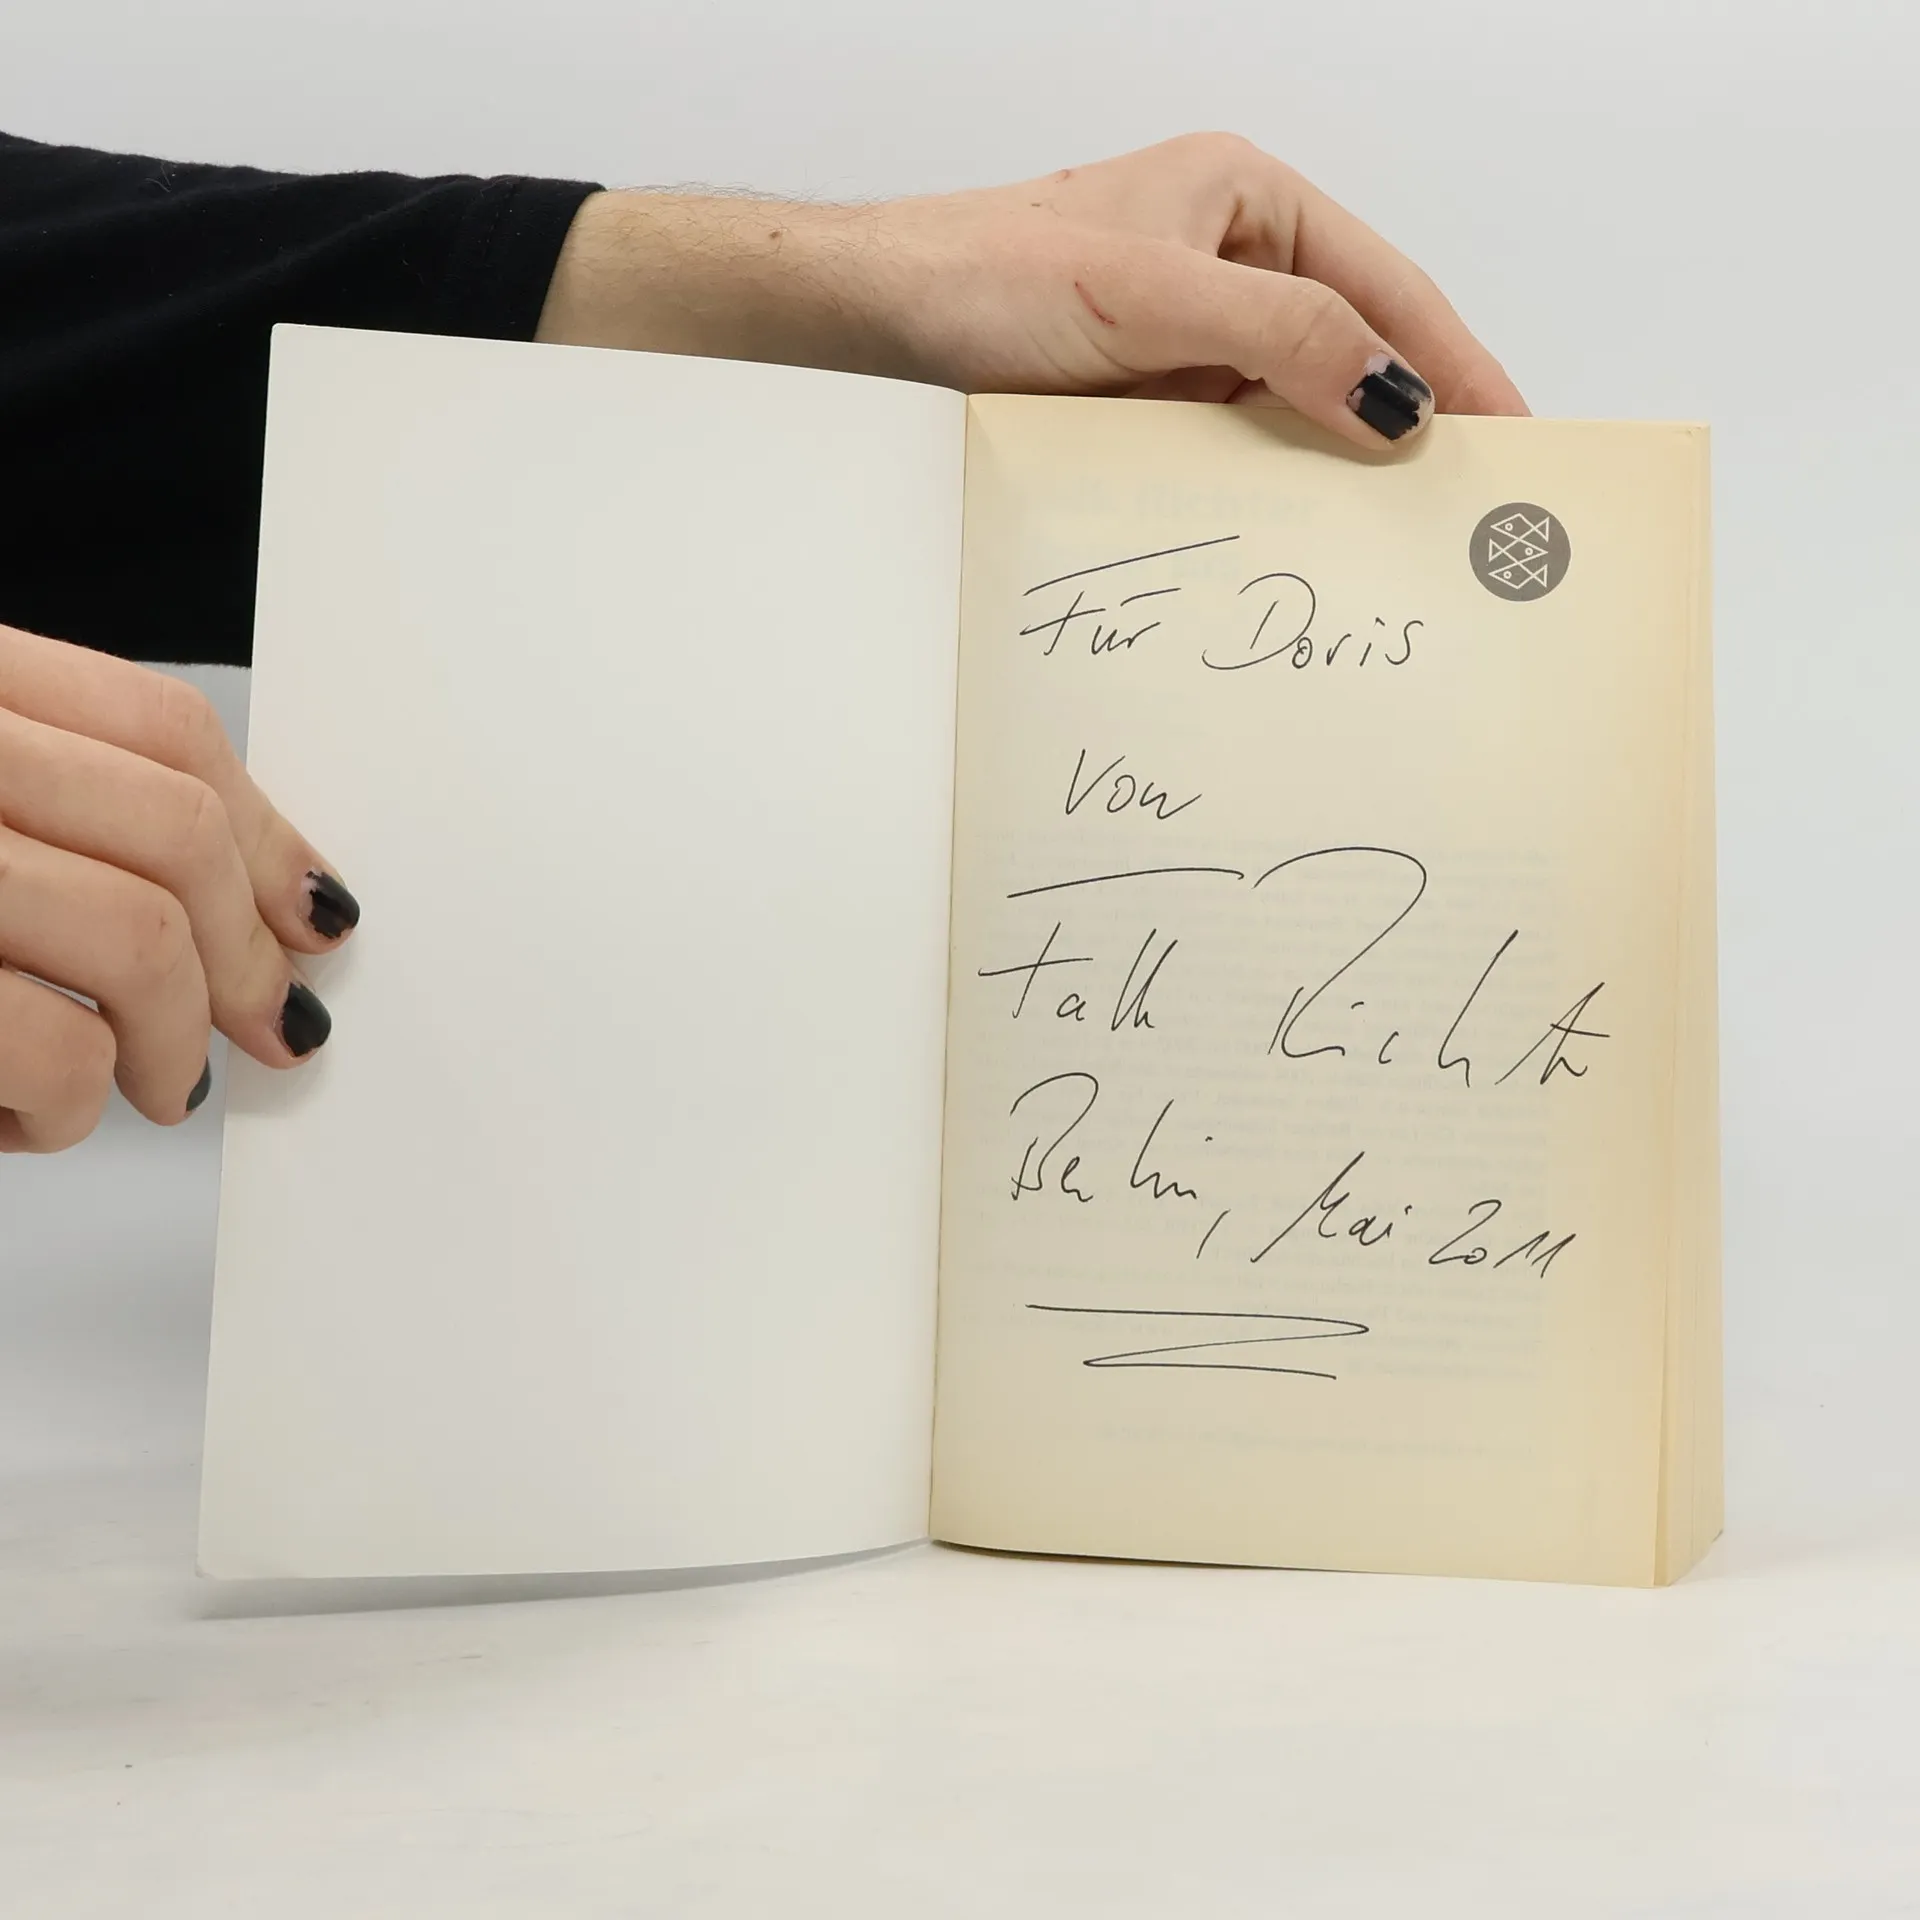 Für Doris
von
Falk Richter
Berlin, Mai 2011